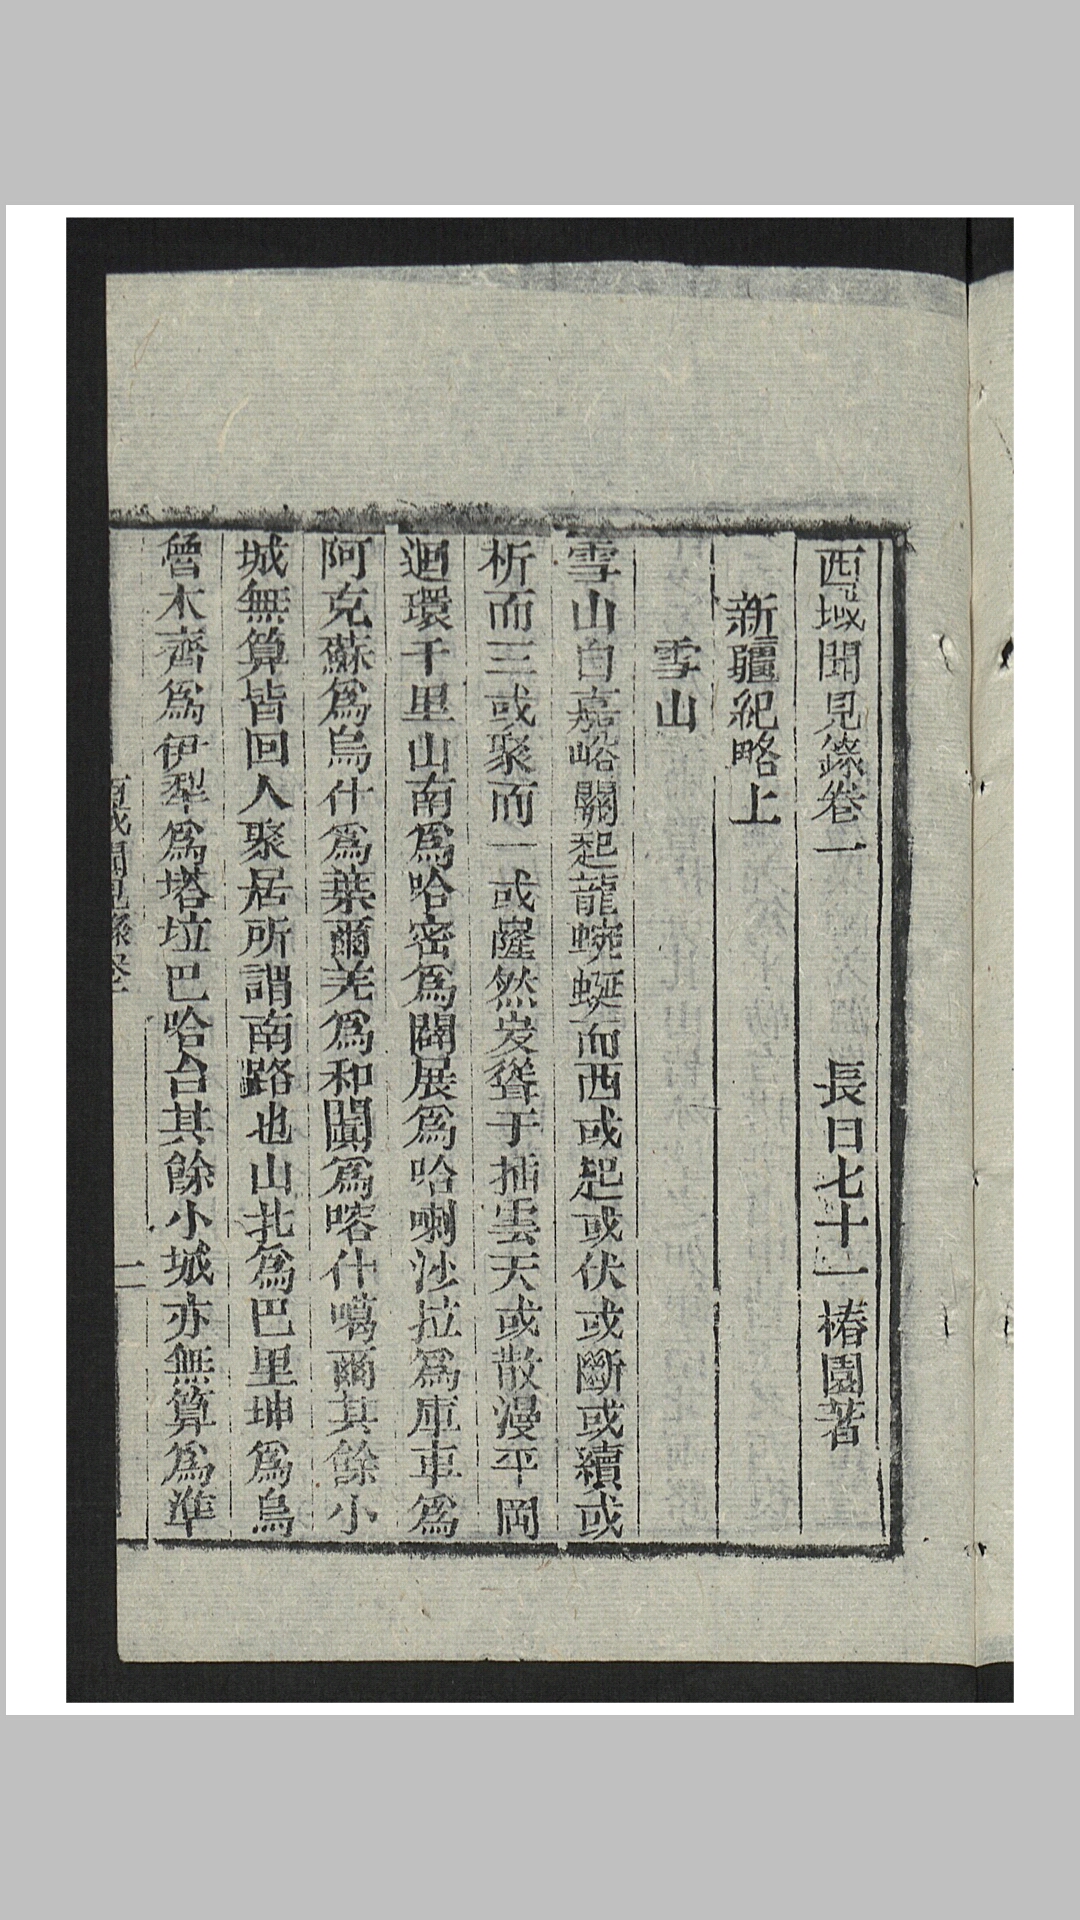 西域聞見錄卷一
長白七十一椿園著
新疆紀略上
雪山
雪山自嘉峪關起龍蜿蜒而西或起或伏或斷或續或
析而三或聚而一或窿然岌聳于插雲天或散漫平岡
迴環千里山南為哈密為闢展為哈喇沙拉為庫車為
阿克蘇為烏什為葉爾羌為和闐為喀什噶爾其餘小
城無算皆回人聚居所謂南路也山北為巴里珅為烏
魯木齊為伊犁為塔垃巴哈台其餘小城亦無算為準
西域聞見錄卷一
一